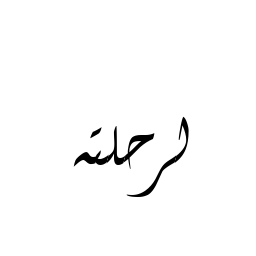 لرحلته